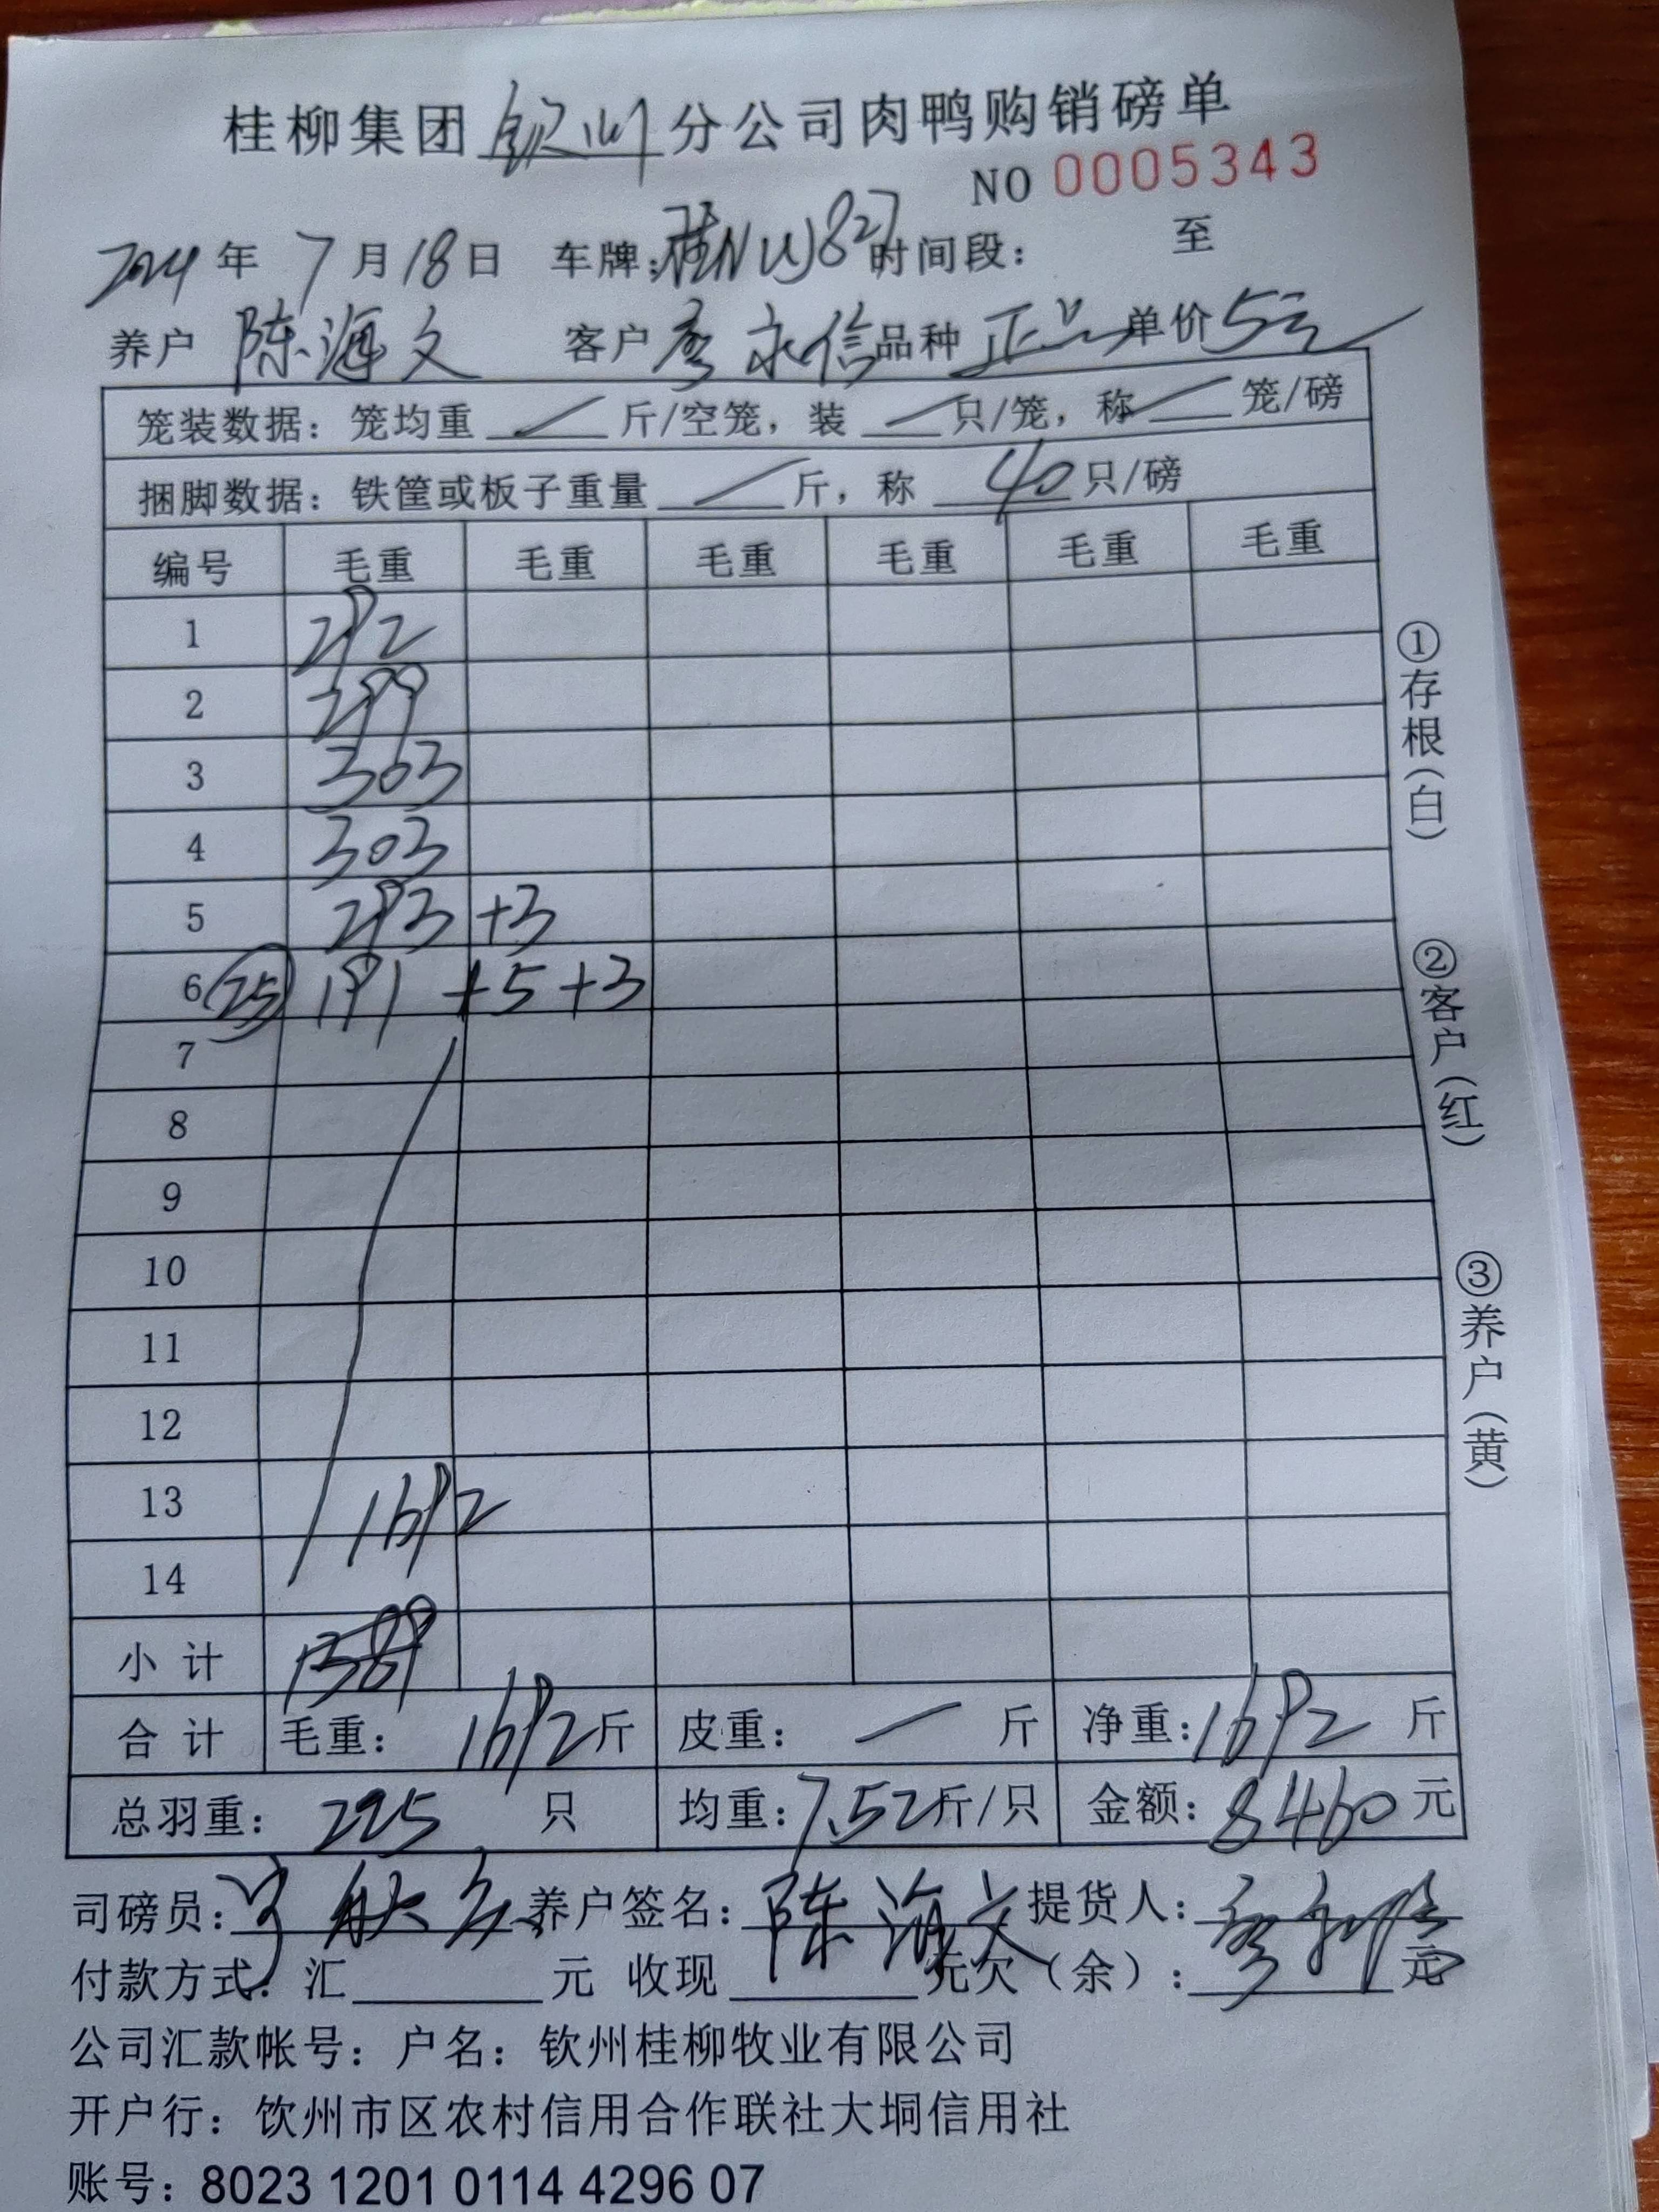 桂柳集团钦州分公司肉鸭购销磅单
NO 0005343
2024年7月18日 车牌:桂NW827时间段: 至
养户 陈海文 客户 廖永信 品种 正 单价5元
笼装数据:笼均重 / 斤/空笼,装 / 只/笼,称 / 笼/磅
捆脚数据:铁筐或板子重量 / 斤,称 40 只/磅
编号 毛重 毛重 毛重 毛重 毛重 毛重
1 292
2 299
3 303
4 303
5 293 +3
6 (25) 191 +5 +3
7
8
9
10
11
12
13 1692
14
小计 1389
合计 毛重: 1692斤 皮重: — 斤 净重:1692 斤
总羽重: 225 只 均重:7.52斤/只 金额:8460元
司磅员: 养户签名:陈海文 提货人:
付款方式:汇 元 收现 元欠(余): 元
公司汇款帐号:户名:钦州桂柳牧业有限公司
开户行:饮州市区农村信用合作联社大垌信用社
账号:8023 1201 0114 4296 07
①存根(白)
②客户(红)
③养户(黄)